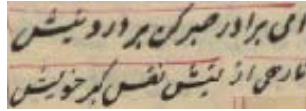 ای برادر صبر کن بر درد نیش
تا رهی از نیش نفس گبر خویش